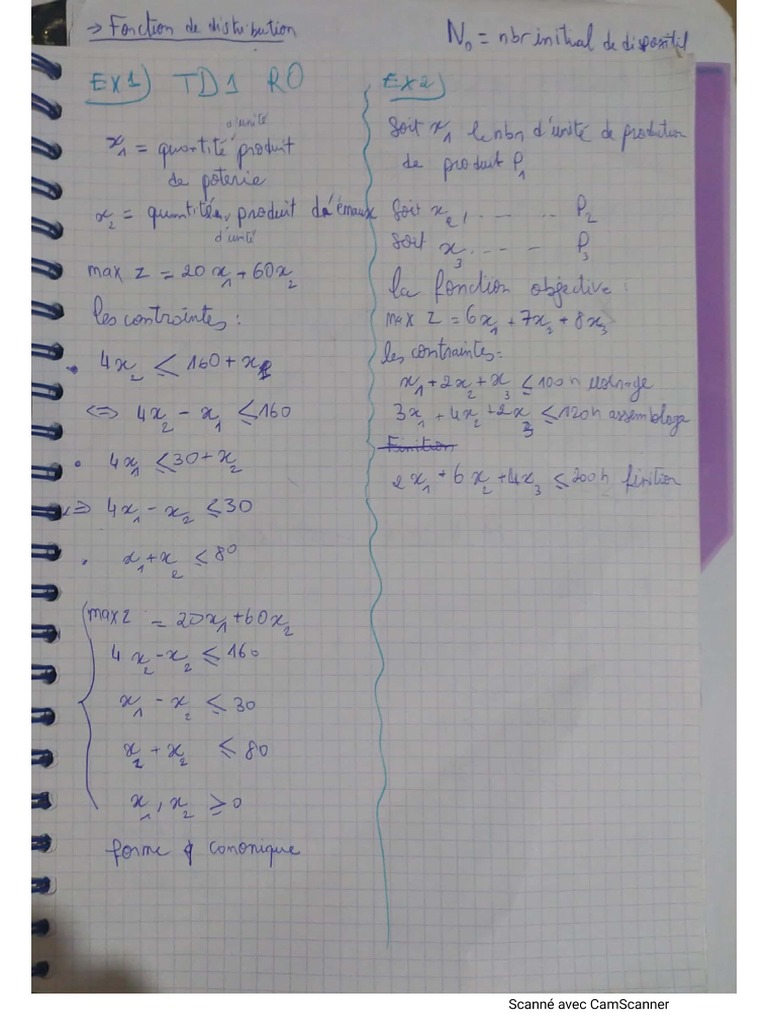 → Fonction de distribution
N₀ = nbr initial de dispositif
EX1) TD1 RO
d'unité
x₁ = quantité produit
de poterie
x₂ = quantités, produit d'émaux
d'unité
max z = 20x₁ + 60x₂
les contraintes :
• 4x₂ ≤ 160 + x₁
<=> 4x₂ - x₁ ≤ 160
• 4x₁ ≤ 30 + x₂
=> 4x₁ - x₂ ≤ 30
• x₁ + x₂ ≤ 80
max z = 20x₁ + 60x₂
4x₂ - x₂ ≤ 160
x₁ - x₂ ≤ 30
x₂ + x₂ ≤ 80
x₁, x₂ ≥ 0
forme cononique
EX2)
Soit x₁ le nbr d'unité de prodution
de produit P₁
Soit x₂, .... .... P₂
Soit x₃ .... — P₃
la fonction objective :
max z = 6x₁ + 7x₃ + 8x₃
les contraintes =
x₁ + 2x₂ + x₃ ≤ 100h usinage
3x₁ + 4x₂ + 2x₃ ≤ 120h assemblage
Finition
2x₁ + 6x₂ + 4x₃ ≤ 200h finition
Scanné avec CamScanner